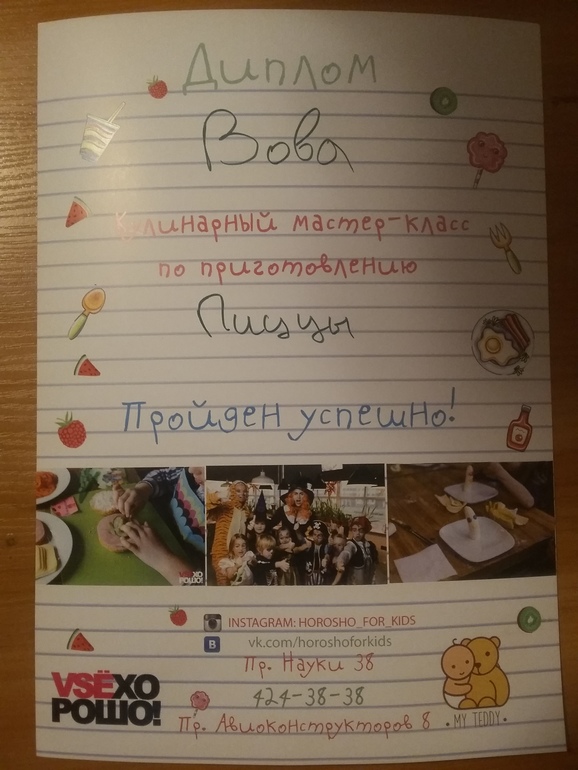 Диплом
Вова
Кулинарный мастер-класс
по приготовлению
Пиццы
Пройден успешно!
VSЁХО
РОШО!
INSTAGRAM: HOROSHO_FOR_KIDS
В vk.com/horoshoforkids
Пр. Науки 38
VSЁХО
РОШО!
424-38-38
Пр. Авиоконструкторов 8
• MY TEDDY •